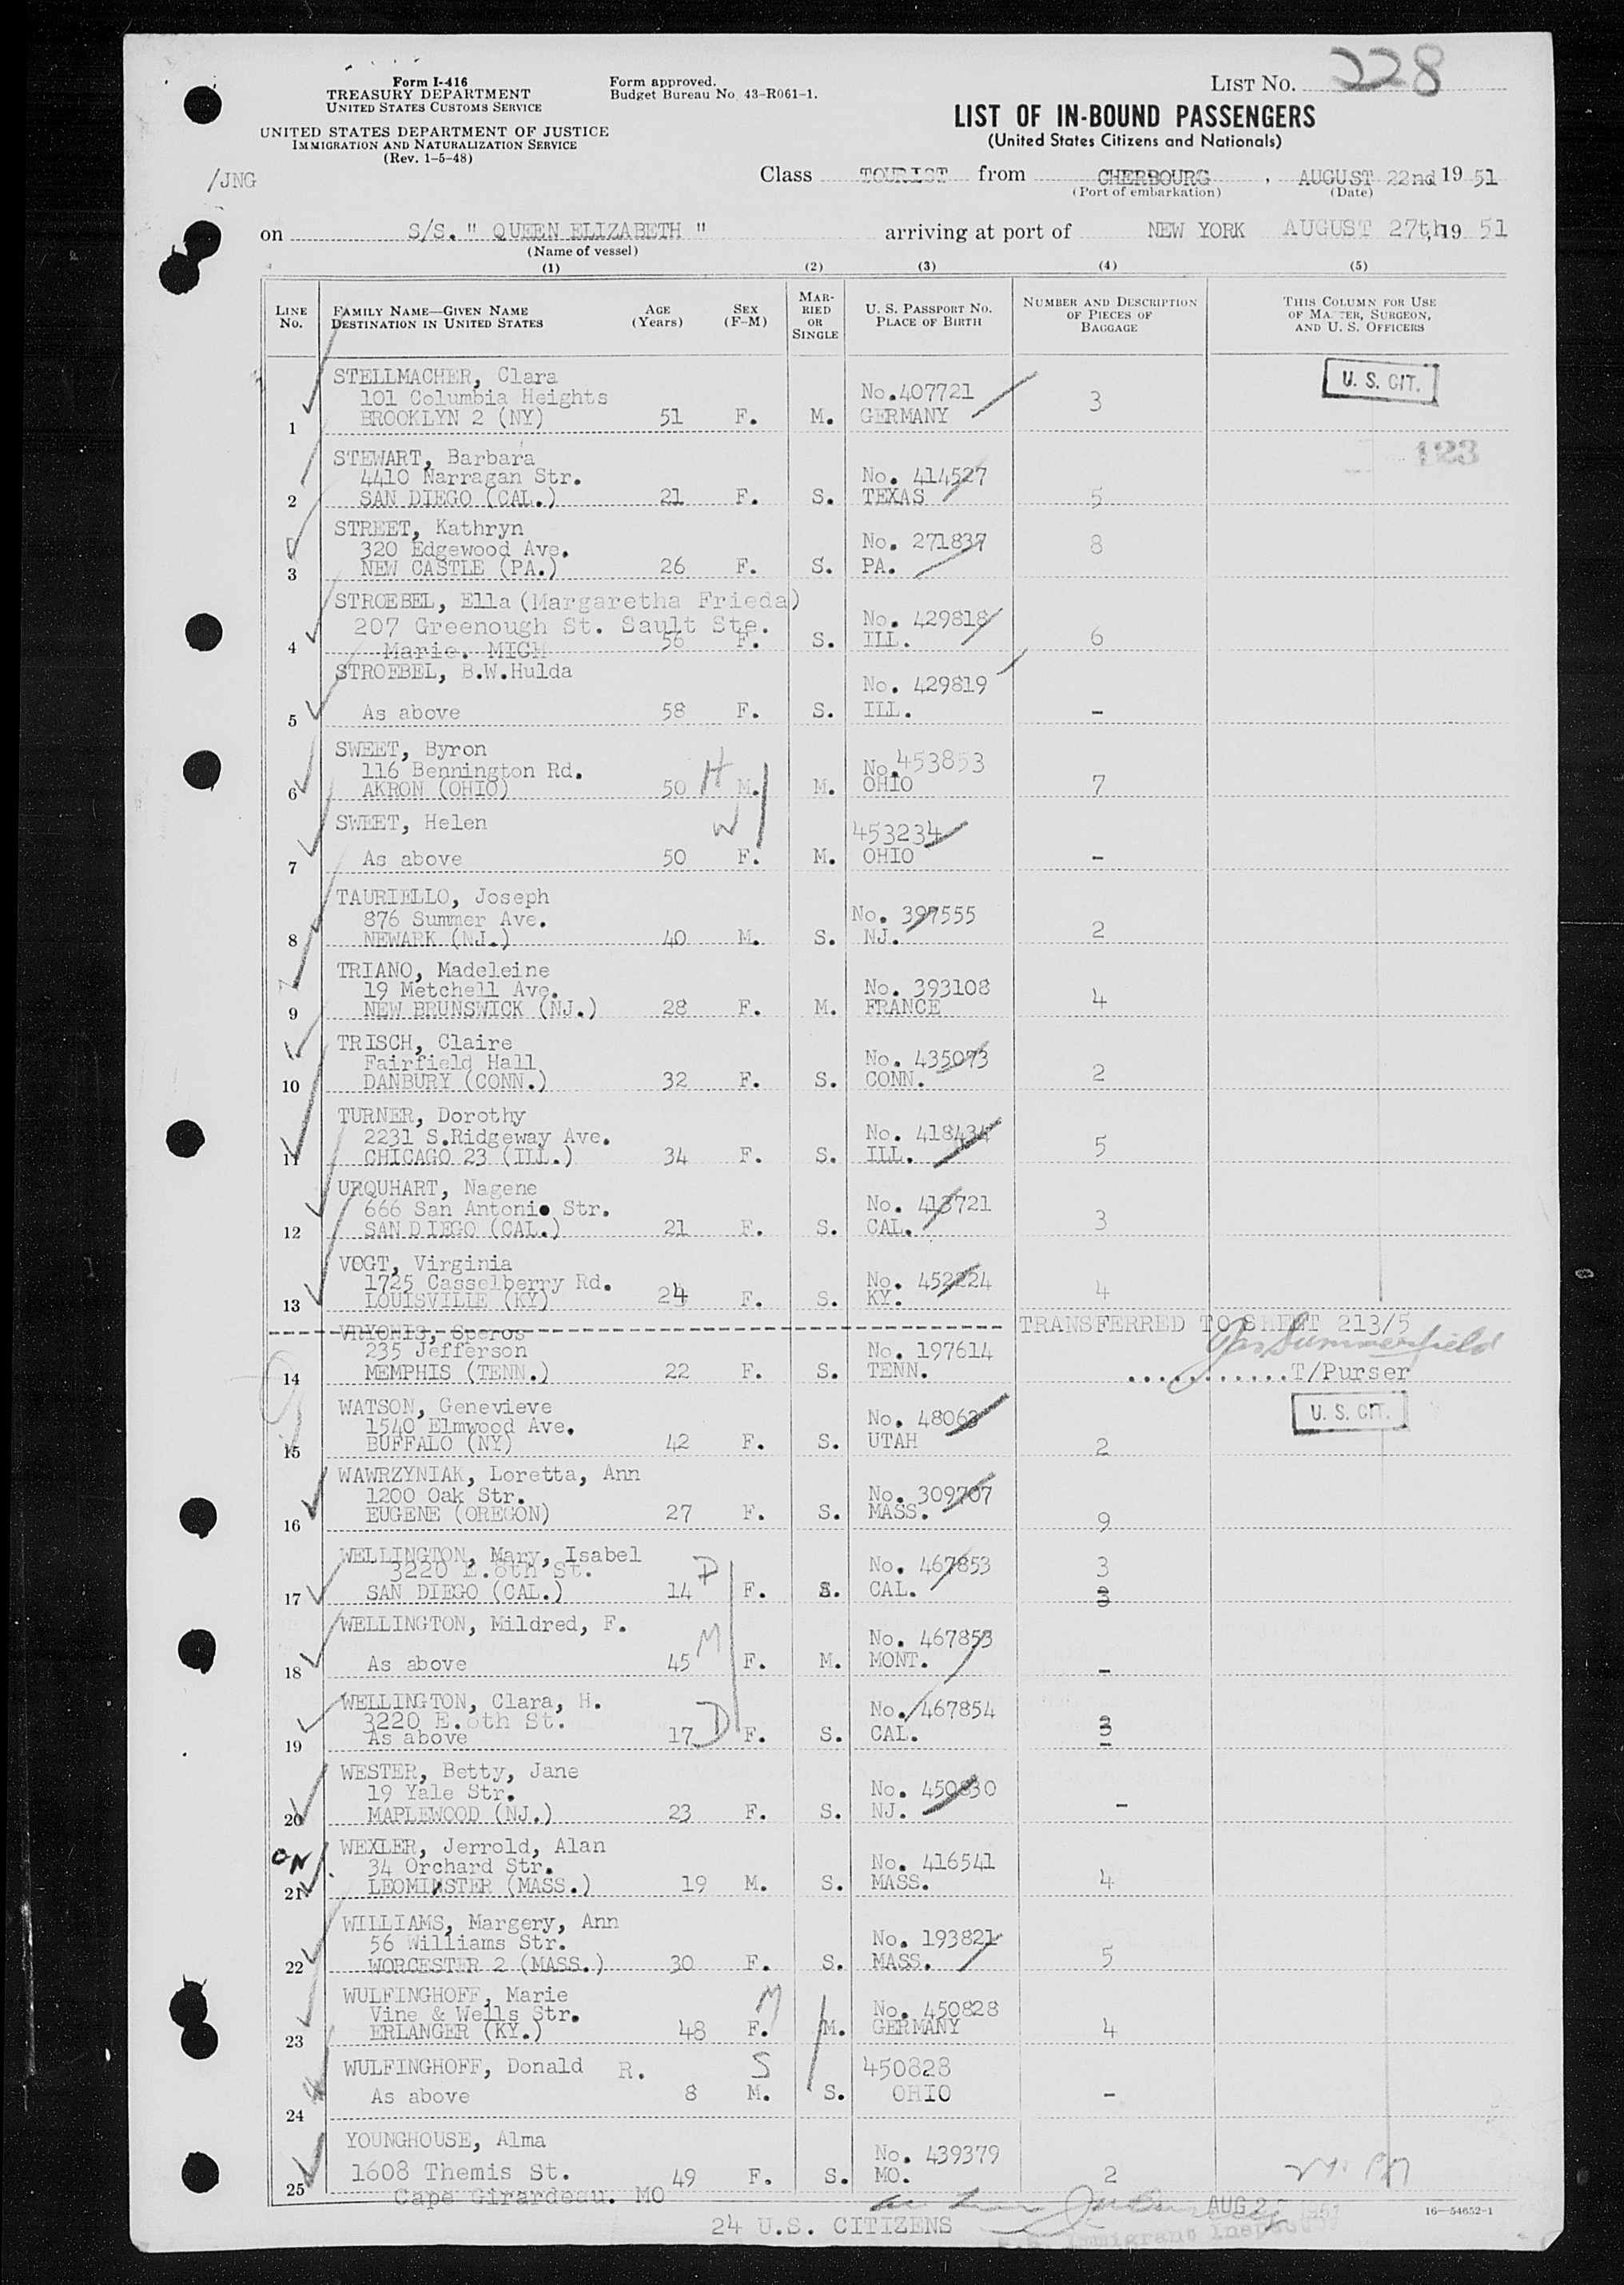 228
Form I-416
TREASURY DEPARTMENT
UNITED STATES CUSTOMS SERVICE
UNITED STATES DEPARTMENT OF JUSTICE
IMMIGRATION AND NATURALIZATION SERVICE
(Rev. 1-5-48)
/JNG
Form approved.
Budget Bureau No. 43-R061-1.
LIST NO.
LIST OF IN-BOUND PASSENGERS
(United States Citizens and Nationals)
Class TOURIST from CHERBOURG, AUGUST 22nd 19 51
(Port of embarkation) (Date)
on S/S. " QUEEN ELIZABETH " arriving at port of NEW YORK AUGUST 27th, 19 51
(Name of vessel)
(1) (2) (3) (4) (5)
LINE No. FAMILY NAME—GIVEN NAME DESTINATION IN UNITED STATES AGE (Years) SEX (F-M) MARRIED OR SINGLE U. S. PASSPORT NO. PLACE OF BIRTH NUMBER AND DESCRIPTION OF PIECES OF BAGGAGE THIS COLUMN FOR USE OF MASTER, SURGEON, AND U. S. OFFICERS
STELLMACHER, Clara U. S. CIT.
101 Columbia Heights No.407721 3
1 BROOKLYN 2 (NY) 51 F. M. GERMANY
STEWART, Barbara 123
4410 Narragan Str. No. 414527
2 SAN DIEGO (CAL.) 21 F. S. TEXAS 5
STREET, Kathryn
320 Edgewood Ave. No. 271837 8
3 NEW CASTLE (PA.) 26 F. S. PA.
STROEBEL, Ella (Margaretha Frieda)
207 Greenough St. Sault Ste. No. 429818
4 Marie. MICH 56 F. S. ILL. 6
STROEBEL, B.W.Hulda
No. 429819
5 As above 58 F. S. ILL. -
SWEET, Byron
116 Bennington Rd. H No. 453853
6 AKRON (OHIO) 50 M. M. OHIO 7
SWEET, Helen W 453234
7 As above 50 F. M. OHIO -
TAURIELLO, Joseph
876 Summer Ave. No. 397555
8 NEWARK (NJ.) 40 M. S. NJ. 2
TRIANO, Madeleine
19 Metchell Ave. No. 393108
9 NEW BRUNSWICK (NJ.) 28 F. M. FRANCE 4
TRISCH, Claire
Fairfield Hall No. 435073
10 DANBURY (CONN.) 32 F. S. CONN. 2
TURNER, Dorothy
2231 S.Ridgeway Ave. No. 418434
11 CHICAGO 23 (ILL.) 34 F. S. ILL. 5
URQUHART, Nagene
666 San Antonio Str. No. 413721
12 SAN DIEGO (CAL.) 21 F. S. CAL. 3
VOGT, Virginia
1725 Casselberry Rd. No. 452224
13 LOUISVILLE (KY) 24 F. S. KY. 4
VRYONIS, Speros TRANSFERRED TO SHEET 213/5
235 Jefferson No. 197614 Summerfield
14 MEMPHIS (TENN.) 22 F. S. TENN. ............T/Purser
WATSON, Genevieve U. S. CIT.
1540 Elmwood Ave. No. 48063
15 BUFFALO (NY) 42 F. S. UTAH 2
WAWRZYNIAK, Loretta, Ann
1200 Oak Str. No. 309707
16 EUGENE (OREGON) 27 F. S. MASS. 9
WELLINGTON, Mary, Isabel D
3220 E.8th St. No. 467853 3
17 SAN DIEGO (CAL.) 14 F. S. CAL. 3
WELLINGTON, Mildred, F. M
No. 467853
18 As above 45 F. M. MONT. -
WELLINGTON, Clara, H. D
3220 E.8th St. No. 467854 3
19 As above 17 F. S. CAL. -
WESTER, Betty, Jane
19 Yale Str. No. 450830
20 MAPLEWOOD (NJ.) 23 F. S. NJ. -
ON WEXLER, Jerrold, Alan
34 Orchard Str. No. 416541
21 LEOMINSTER (MASS.) 19 M. S. MASS. 4
WILLIAMS, Margery, Ann
56 Williams Str. No. 193821
22 WORCESTER 2 (MASS.) 30 F. S. MASS. 5
WULFINGHOFF, Marie M
Vine & Wells Str. No. 450828
23 ERLANGER (KY.) 48 F. M. GERMANY 4
WULFINGHOFF, Donald R. S 450828
As above 8 M. S. OHIO -
24
YOUNGHOUSE, Alma
1608 Themis St. No. 439379
25 49 F. S. MO. 2
Cape Girardeau. MO
AUG 2 1951
16—54652-1
24 U.S. CITIZENS
Immigrant Inspector